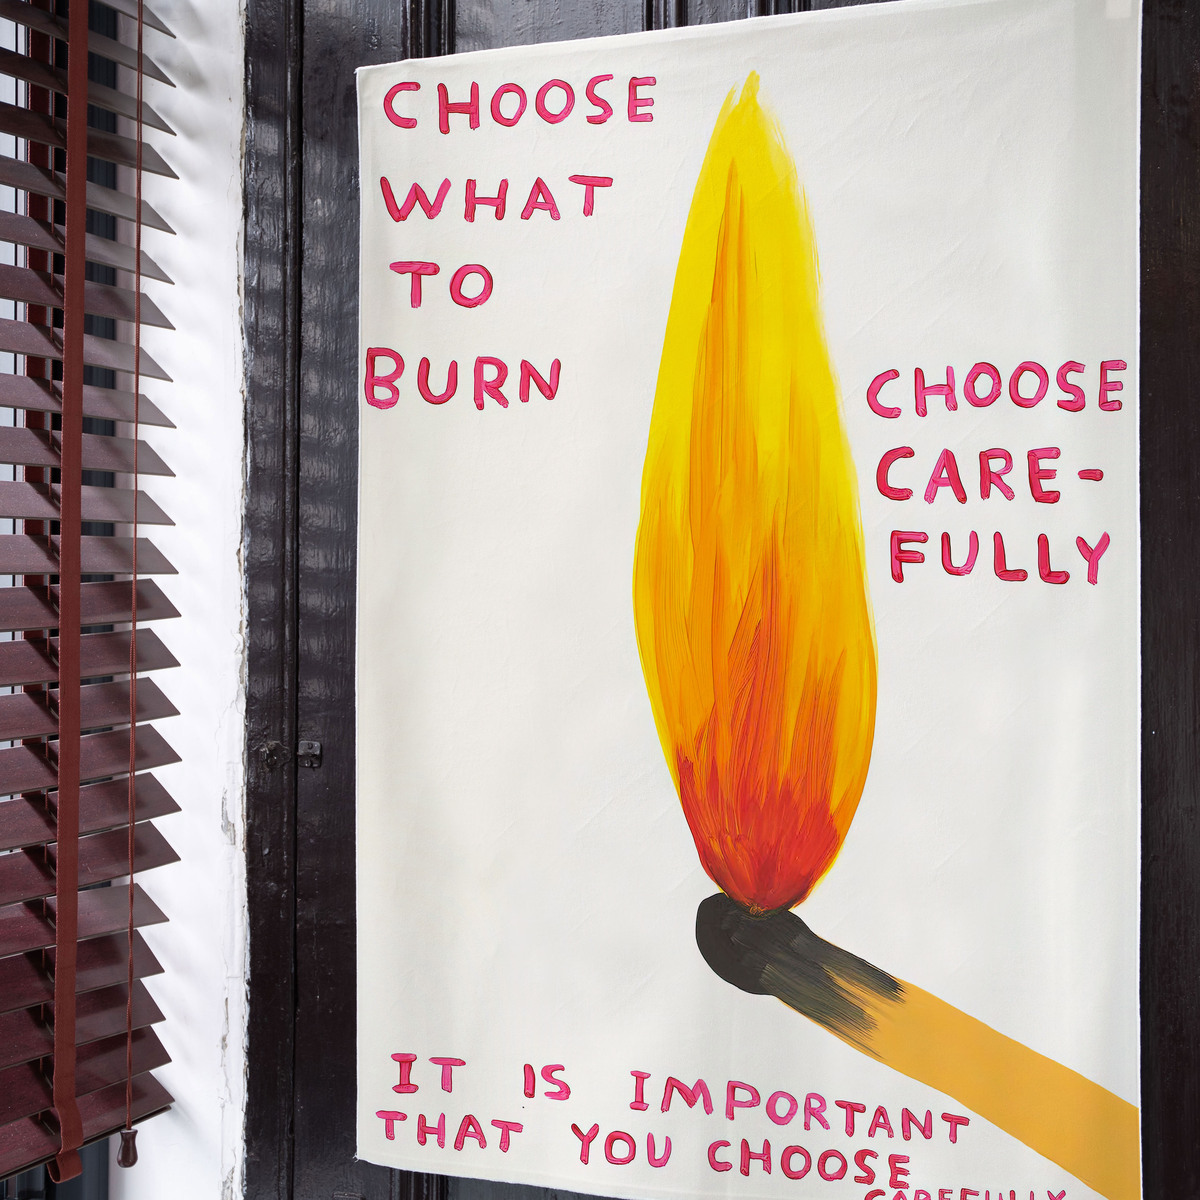 CHOOSE
WHAT
TO
BURN
CHOOSE
CARE-
FULLY
IT IS IMPORTANT
THAT YOU CHOOSE
CAREFULLY